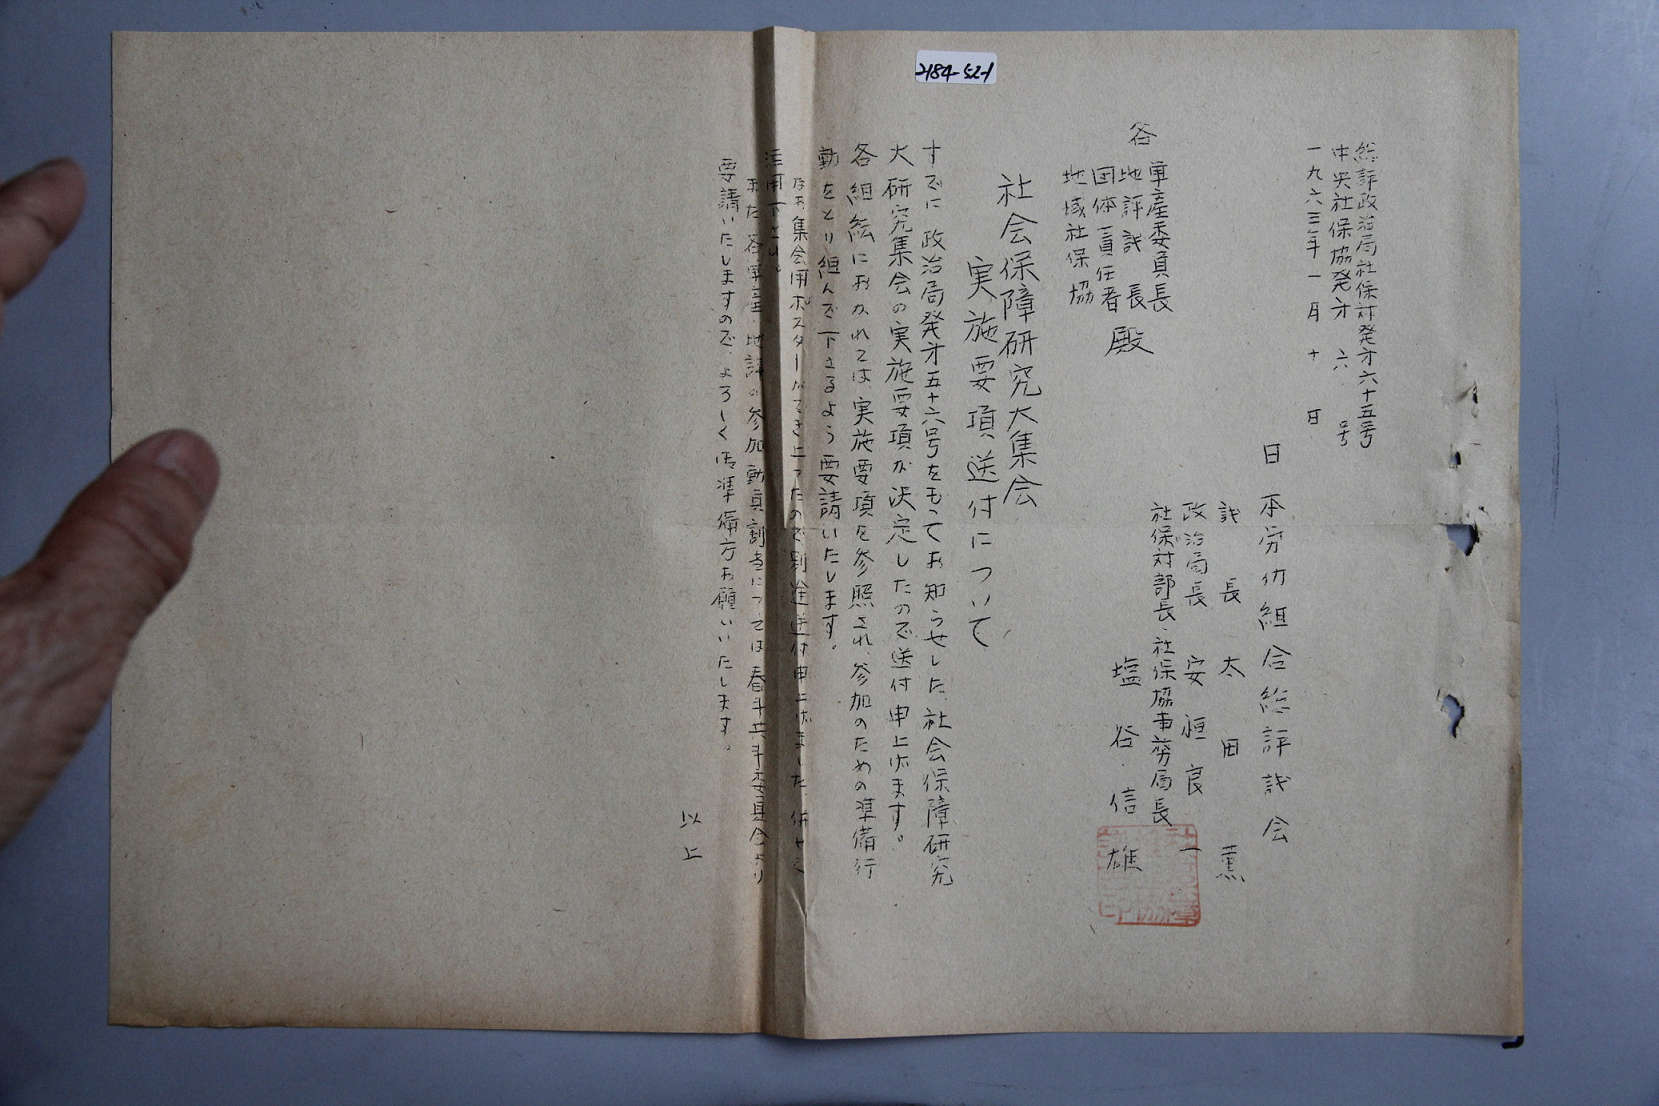 2184-52-1
総評政治局社保対発才六十五号
中央社保協発才六号
一九六三年一月十日
日本労仂組合総評議会
議長 太田薫
政治局長 安恒良一
社保対部長、社保協事務局長
塩谷信雄
各
単産委員長
地評議長
団体責任者
地域社保協
殿
社会保障研究大集会
実施要項送付について
すでに政治局発才五十六号をもってお知らせした、社会保障研究
大研究集会の実施要項が決定したので送付申上げます。
各組絃におかれては、実施要項を参照され、参加のための準備行
動をとり組んで下さるよう要請いたします。
なお集会用ポスターができ上ったので別途送付申上げました 併せご
活用下さい。
また各単産 地評の参加動員割当については春斗共斗委員会より
要請いたしますので、よろしく御準備方お願いいたします。
以上